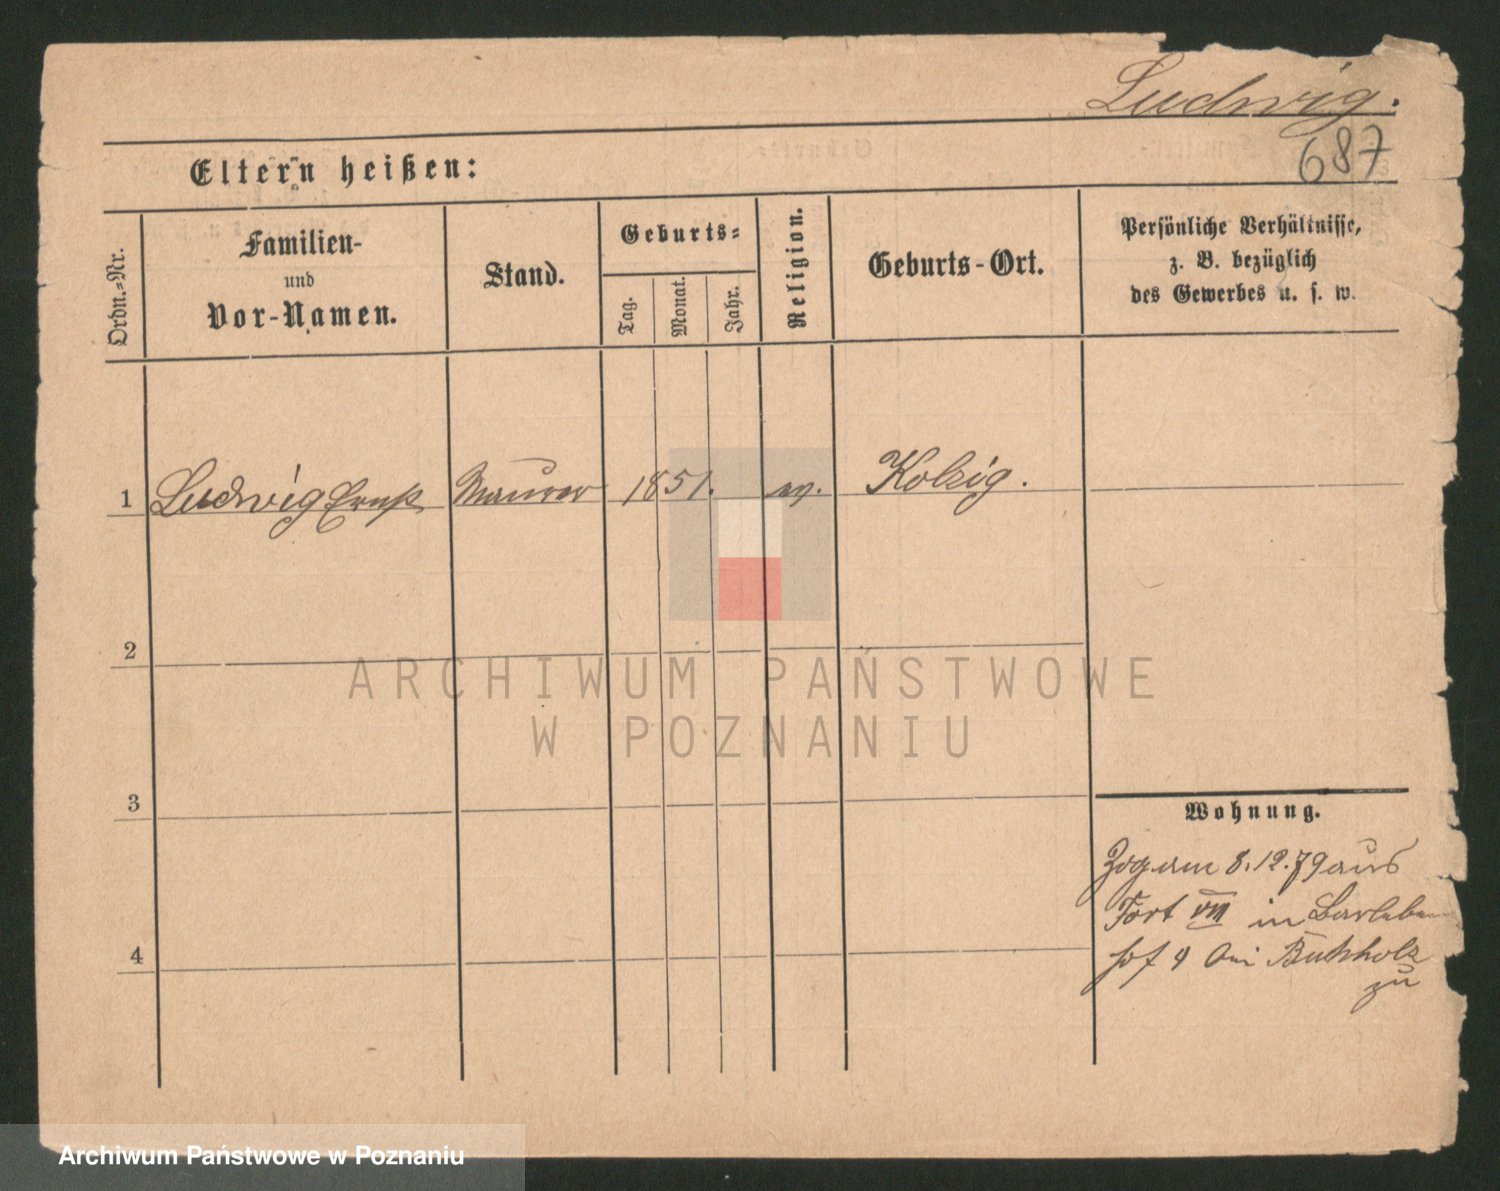 Ludwig.
687
Eltern heißen:
Ordn.=Nr.
Familien-
und
Vor-Namen.
Stand.
Geburts=
Tag.
Monat.
Jahr.
Religion.
Geburts-Ort.
Persönliche Verhältnisse,
z. B. bezüglich
des Gewerbes u. s. w.
1 Ludwig Ernst Maurer 1851. ev. Kolzig.
2
3
4
Wohnung.
Zog am 8.12.79 aus
Fort VIII in Barleben
hof 9 bei Buchholz
zu
ARCHIWUM PAŃSTWOWE
W POZNANIU
Archiwum Państwowe w Poznaniu